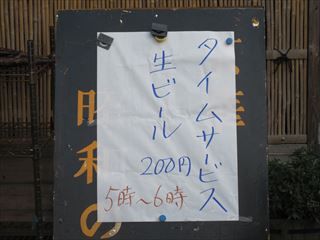 タイムサービス
生ビール
200円
5時〜6時
昭和の